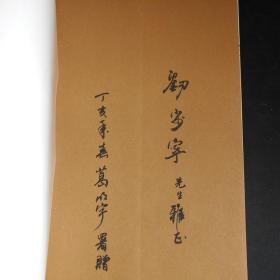 劉步寧先生雅正
丁亥年春葛鸿宇署贈